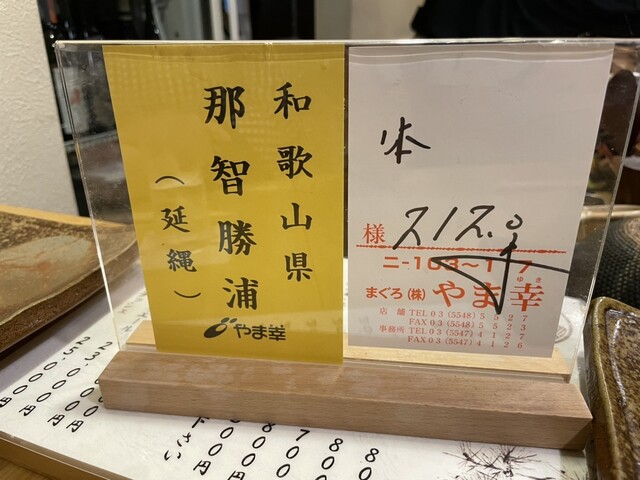 和歌山県
那智勝浦
(延縄)
やま幸
本
様 212.
ニ-103~1 7
まぐろ(株)やま幸
ゆき
店舗 TEL 03 (5548) 5527
FAX 03 (5548) 5523
事務所 TEL 03 (5547) 4127
FAX 03 (5547) 4126